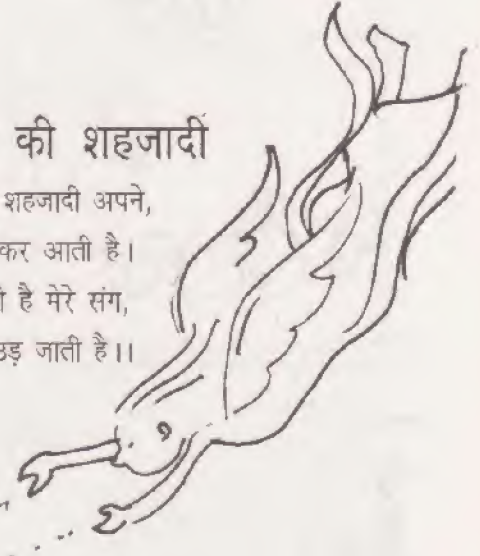 की शहजादी
शहजादी अपने,
कर आती है।
है मेरे संग,
उड़ जाती है।।